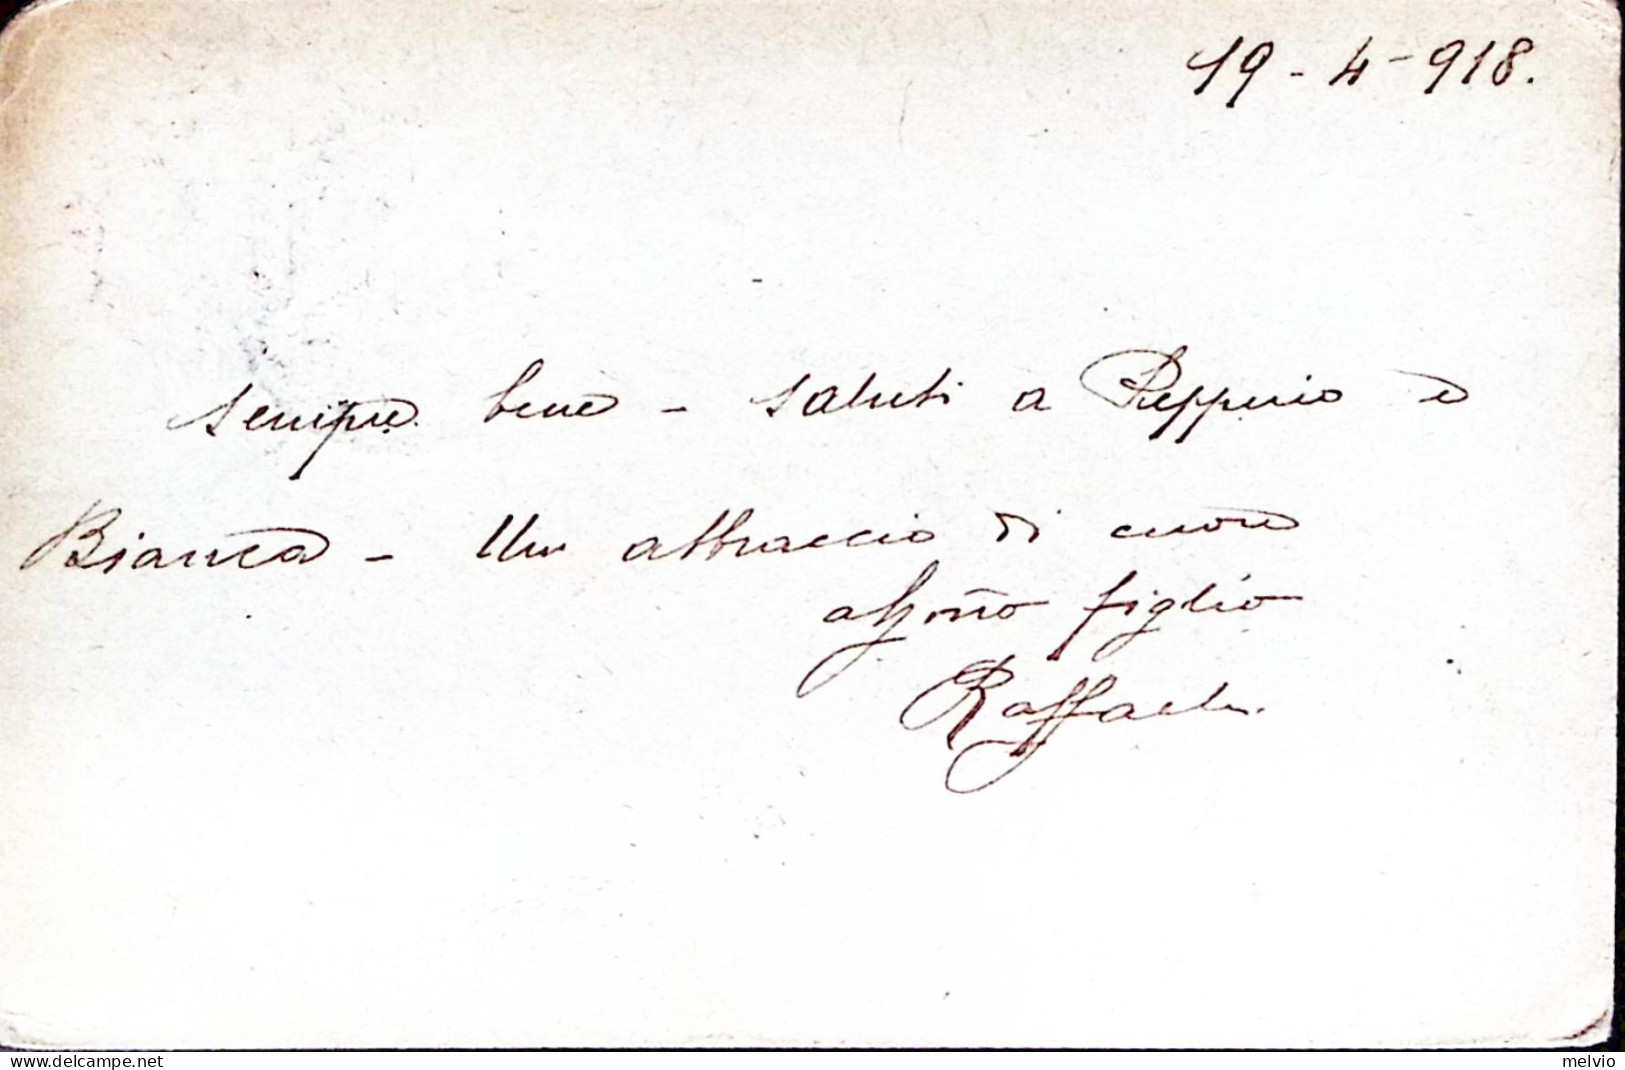 19-4-918.
Sempre bene - saluti a Peppino e
Bianca - Un abbraccio di cuore
affmo figlio
Raffaele.
delcampe.net
melvio